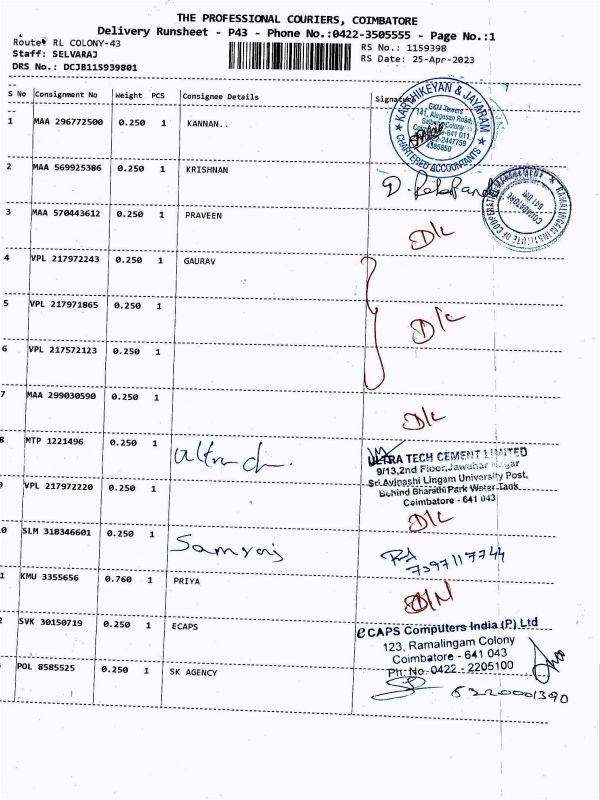 THE PROFESSIONAL COURIERS, COIMBATORE
Delivery Runsheet - P43 - Phone No.:0422-3505555 - Page No.:1
Route: RL COLONY-43
RS No.: 1159398
Staff: SELVARAJ
RS Date: 25-Apr-2023
DRS No.: DCJB115939801
S No Consignment No Weight PCS Consignee Details Signature
KARTHIKEYAN & JAYARAM
CHARTERED ACCOUNTANTS
GKM Towers
141, Alagesan Road,
1 MAA 296772500 0.250 1 KANNAN..
2 MAA 569925386 0.250 1 KRISHNAN
RAMALINGAM INSTITUTE OF COOPERATIVE MANAGEMENT
COIMBATORE
641 011
3 MAA 570443612 0.250 1 PRAVEEN D/L
4 VPL 217972243 0.250 1 GAURAV
5 VPL 217971865 0.250 1 D/L
6 VPL 217572123 0.250 1
7 MAA 299030590 0.250 1 D/L
8 MTP 1221496 0.250 1
ULTRA TECH CEMENT LIMITED
9/13,2nd Floor,Jawahar Nagar
Sri Avinashi Lingam University Post,
Behind Bharathi Park Water Tank
Coimbatore - 641 043
9 VPL 217972220 0.250 1 D/L
0 SLM 318346601 0.250 1 Samraj
7397117744
1 KMU 3355656 0.760 1 PRIYA D/N
2 SVK 30150719 0.250 1 ECAPS
eCAPS Computers India (P) Ltd
123, Ramalingam Colony
Coimbatore - 641 043
Ph: No. 0422 - 2205100
POL 8585525 0.250 1 SK AGENCY